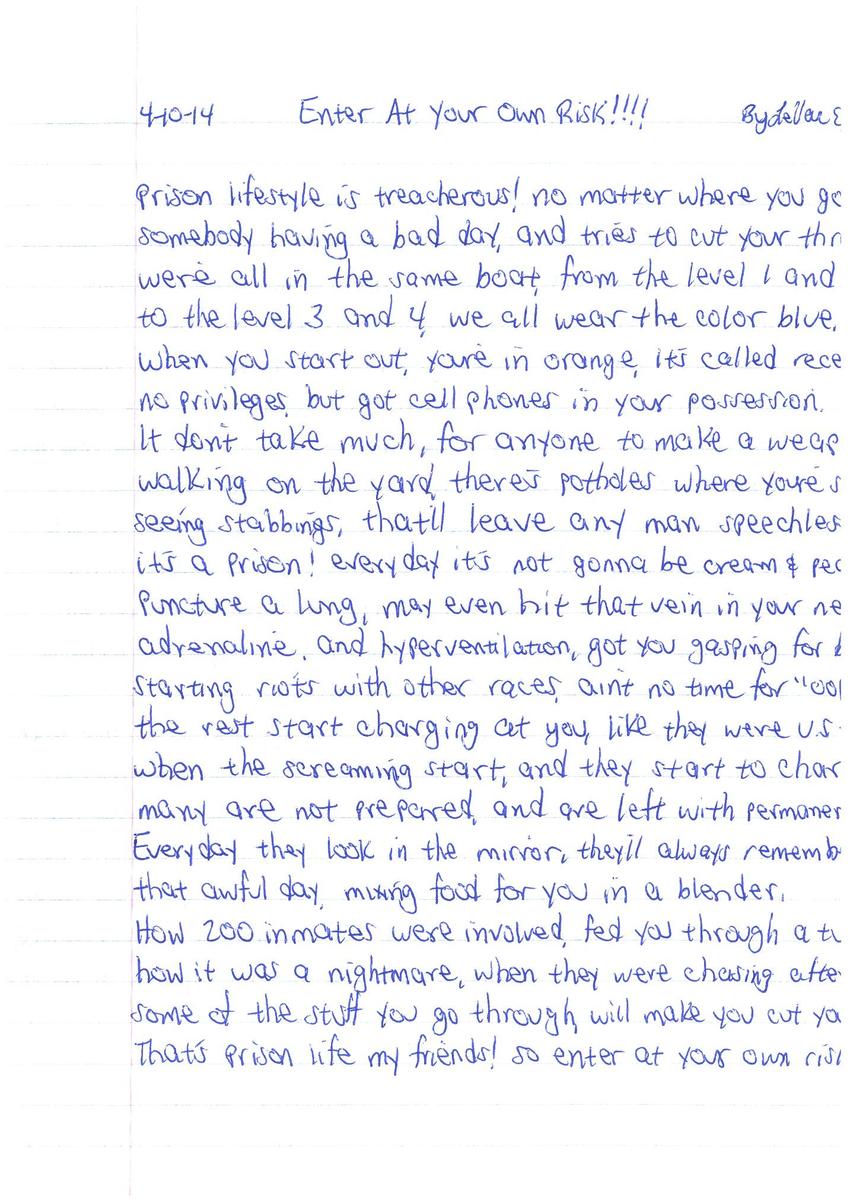 4-10-14 Enter At Your Own Risk!!!! By
Prison lifestyle is treacherous! no matter where you go
somebody having a bad day, and tries to cut your thr
we're all in the same boat, from the level 1 and
to the level 3 and 4, we all wear the color blue.
When you start out, you're in orange, it's called rece
no privileges, but got cell phones in your possession.
It don't take much, for anyone to make a weap
walking on the yard, there's potholes where you're s
seeing stabbings, that'll leave any man speechles
it's a prison! everyday it's not gonna be cream & pec
Puncture a lung, may even hit that vein in your ne
adrenaline, and hyperventilation, got you gasping for
starting riots with other races, ain't no time for "cool
the rest start charging at you, like they were U.S.
when the screaming start, and they start to char
many are not prepared, and are left with permanen
Everyday they look in the mirror, they'll always rememb
that awful day, mixing food for you in a blender.
How 200 inmates were involved, fed you through a tu
how it was a nightmare, when they were chasing afte
some of the stuff you go through, will make you cut yo
That's prison life my friends! so enter at your own risk